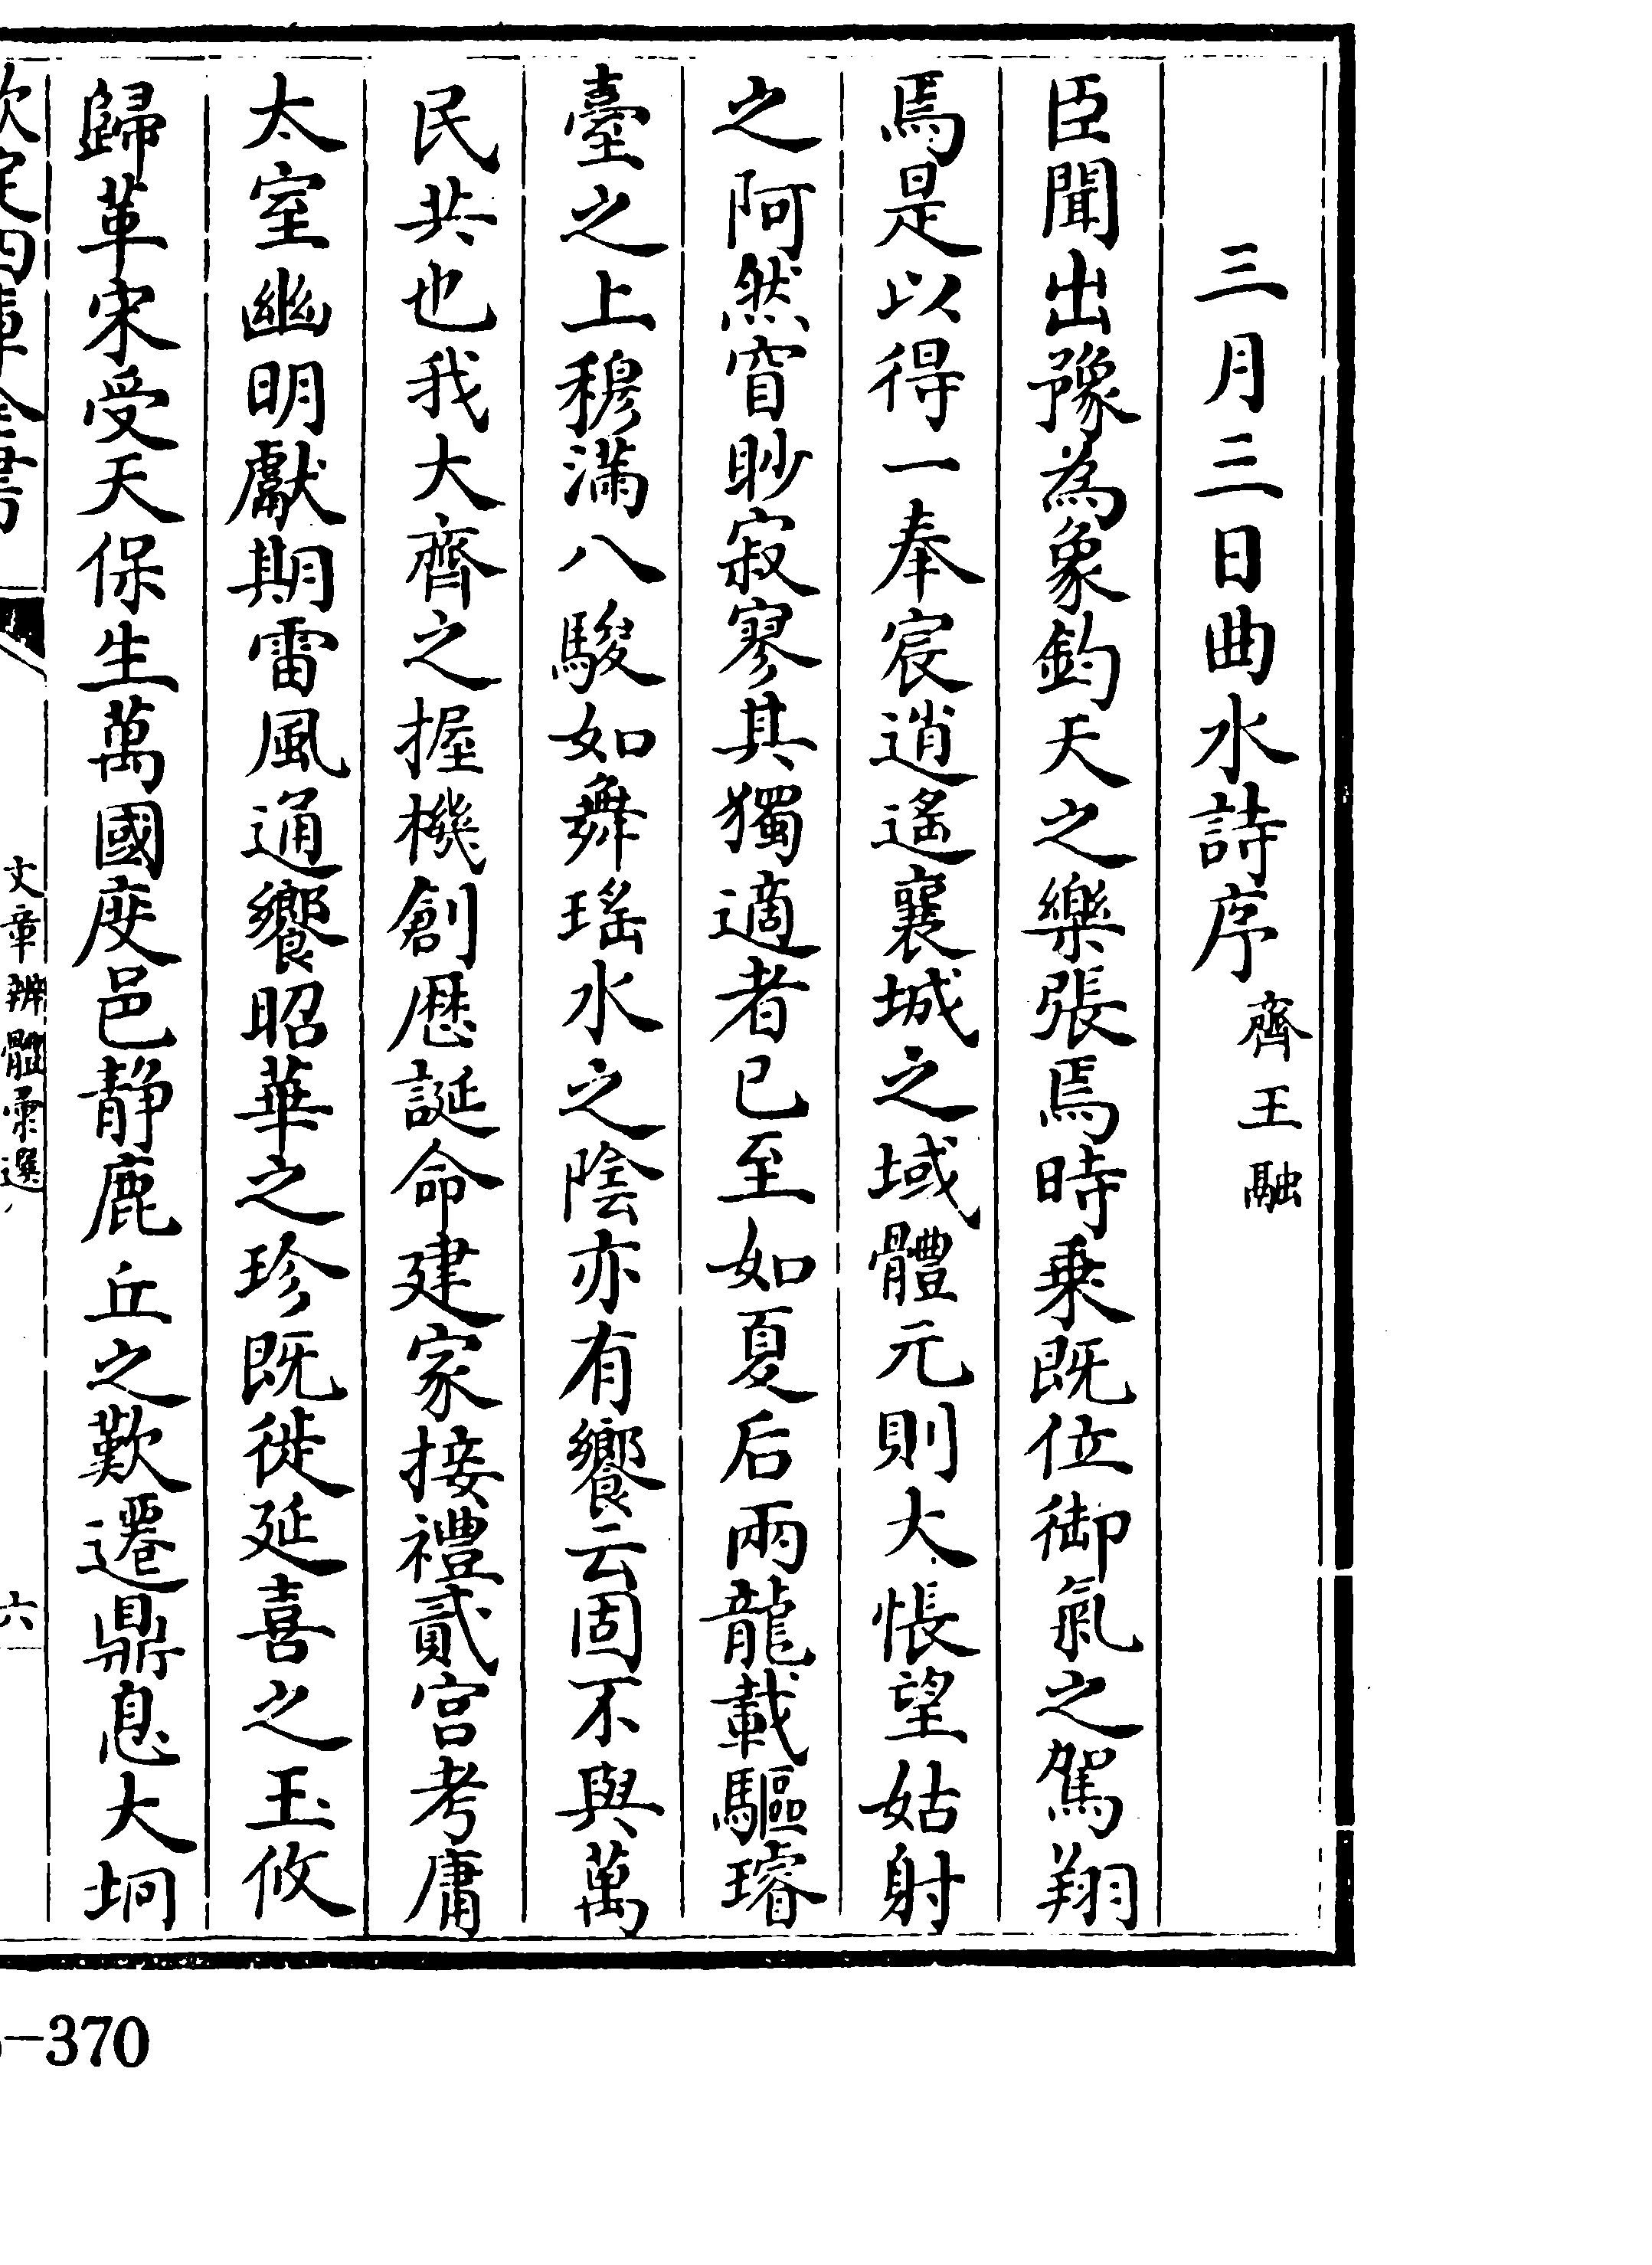 三月三日曲水詩序 齊王融
臣聞出豫為象鈞天之樂張焉時乗既位御氣之駕翔
焉是以得一奉宸逍遙襄城之域體元則大悵望姑射
之阿然窅眇寂寥其獨適者已至如夏后兩龍載驅璿
臺之上穆滿八駿如舞瑤水之陰亦有饗云固不與萬
民共也我大齊之握機創歷誕命建家接禮貳宮考庸
太室幽明獻期雷風通饗昭華之珍既徙延喜之玉攸
歸革宋受天保生萬國度邑静鹿丘之歎遷鼎息大坰
欽定四庫全書
文章辨體彙選
六
-370